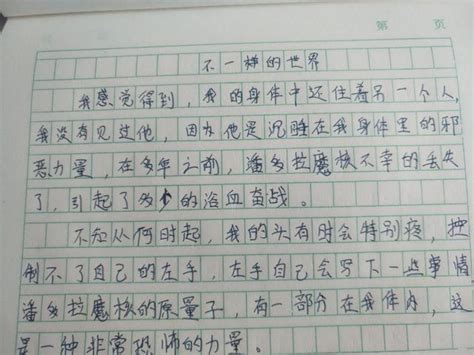 第 页
不一样的世界
我感觉得到，我的身体中还住着另一个人，
我没有见过他，因为他是沉睡在我身体里的邪
恶力量，在多年之前，潘多拉魔核不幸的丢失
了，引起了多少的浴血奋战。
不知从何时起，我的头有时会特别疼，控
制不了自己的左手，左手自己会写下一些事情
潘多拉魔核的原量子，有一部分在我体内，这
是一种非常恐怖的力量。